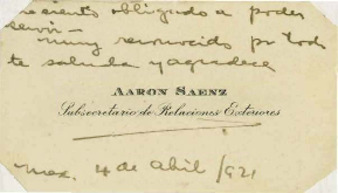 me siento obligado a poder
servir-
muy reconocido por todo
te saluda y agradece
AARON SAENZ
Subsecretario de Relaciones Exteriores
Mex. 4 de Abril /921